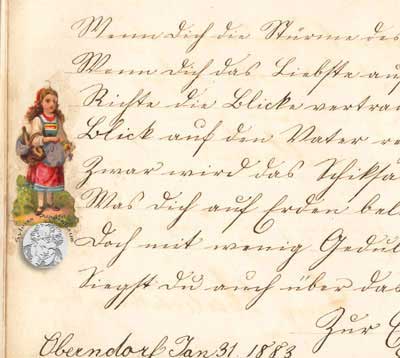 Wenn dich die Stürme des
Wenn dich das Liebste au
Richte die Blicke vertra
Blick auf den Vater re
Zwar wird das Schiksa
Was dich auf Erden bel
Doch mit wenig Gedul
Siegst du auch über das
Zur
Oberndorf Jan 31. 1883